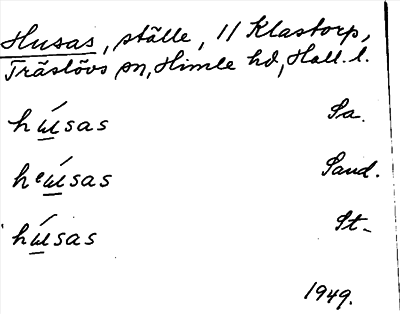 Husas, ställe, 11 Klastorp,
Träslövs sn, Himle hd, Hall. l.
húsas Sa.
heúsas Sand.
húsas St.
1949.